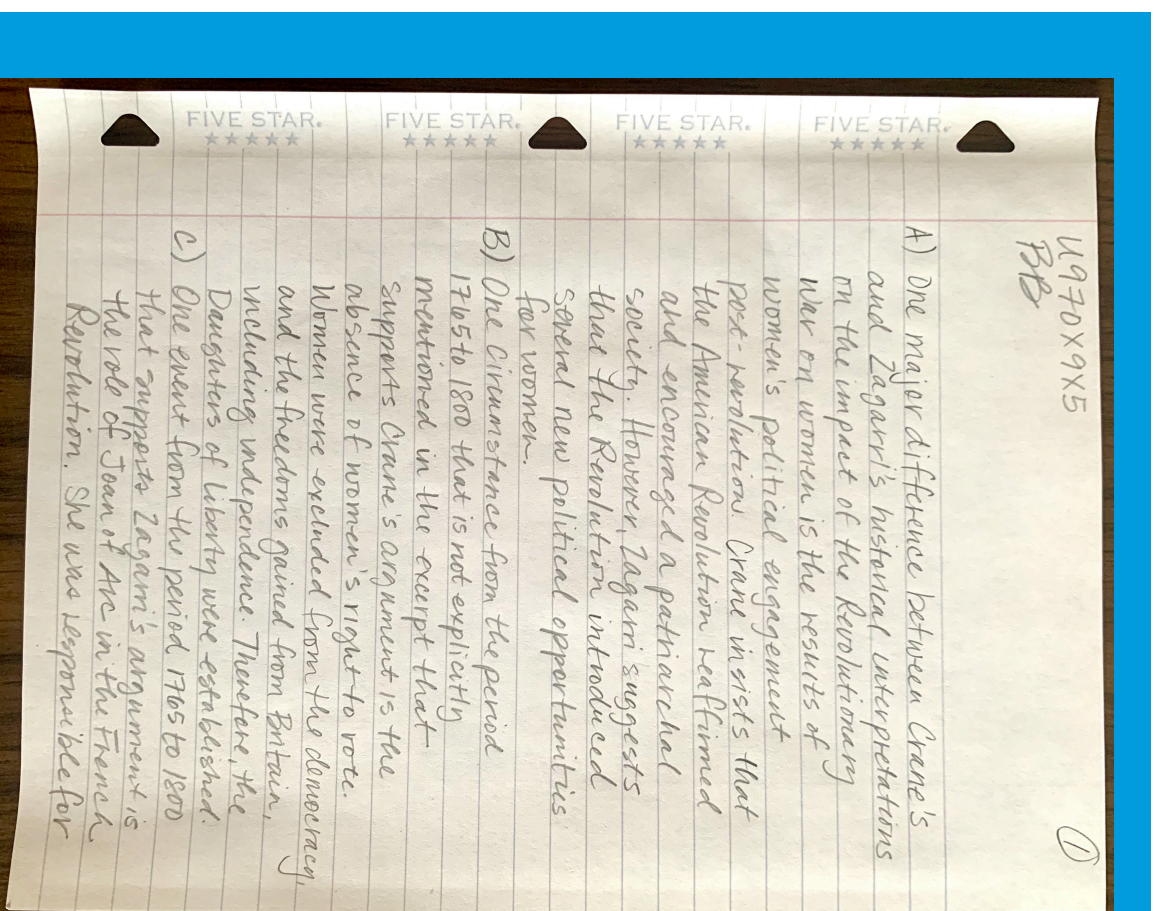 FIVE STAR.
FIVE STAR.
FIVE STAR.
FIVE STAR.
U970X9X5
BB
1
A) One major difference between Crane's
and Zagarri's historical interpretations
on the impact of the Revolutionary
War on women is the results of
women's political engagement
post-revolution. Crane insists that
the American Revolution reaffirmed
and encouraged a patriarchal
society. However, Zagarri suggests
that the Revolution introduced
several new political opportunities
for women.
B) One Circumstance from the period
1765 to 1800 that is not explicitly
mentioned in the excerpt that
supports Crane's argument is the
absence of women's right to vote.
Women were excluded from the democracy,
and the freedoms gained from Britain,
including independence. Therefore, the
Daughters of Liberty were established.
C) One event from the period 1765 to 1800
that supports Zagarri's argument is
the role of Joan of Arc in the French
Revolution. She was responsible for